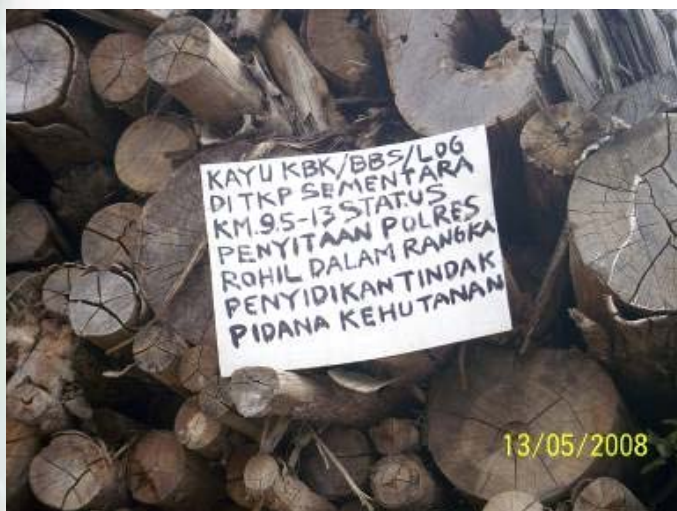 KAYU KBK/BBS/LOG
DI TKP SEMENTARA
KM.9.5-13 STATUS
PENYITAAN POLRES
ROHIL DALAM RANGKA
PENYIDIKAN TINDAK
PIDANA KEHUTANAN
13/05/2008